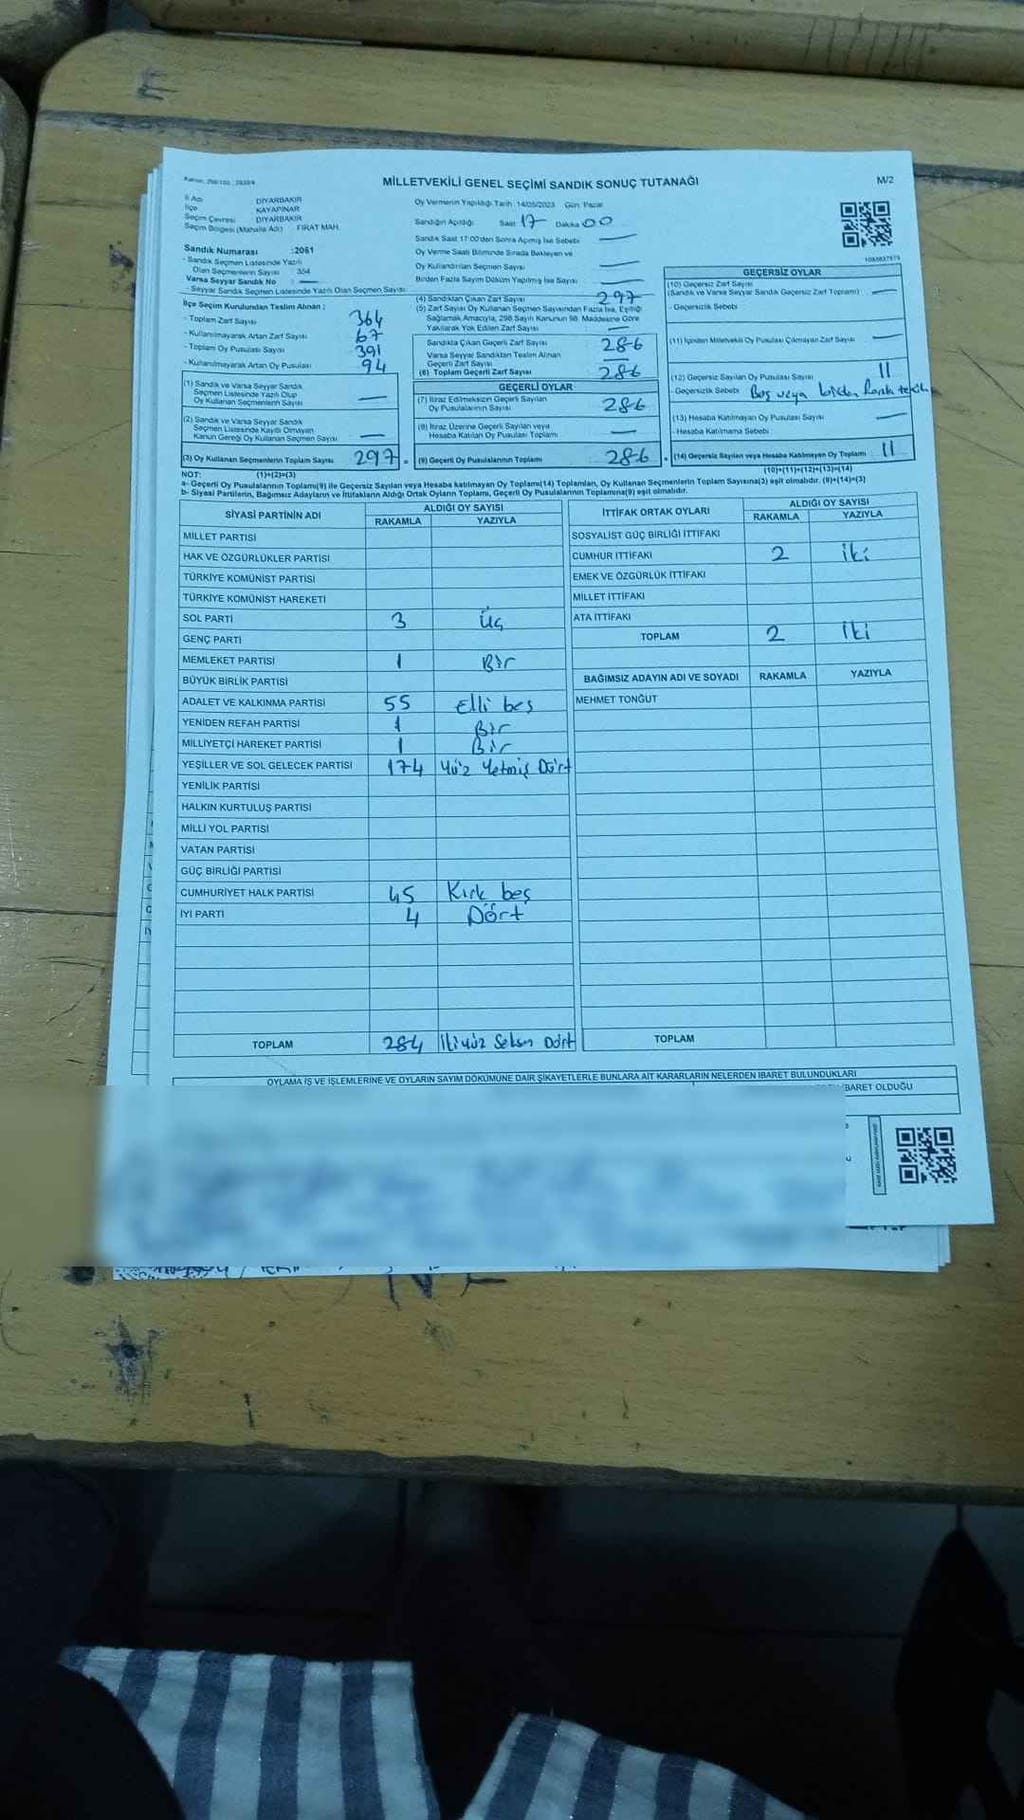 MİLLETVEKİLİ GENEL SEÇİMİ SANDIK SONUÇ TUTANAĞI
M/2
İl Adı DİYARBAKIR
İlçe KAYAPINAR
Seçim Çevresi DİYARBAKIR
Seçim Bölgesi (Mahalle Adı) FIRAT MAH.
Sandık Numarası :2061
- Sandık Seçmen Listesinde Yazılı
Olan Seçmenlerin Sayısı : 354
Varsa Seyyar Sandık No : —
- Seyyar Sandık Seçmen Listesinde Yazılı Olan Seçmen Sayısı
Oy Vermenin Yapıldığı Tarih : 14/05/2023 Gün: Pazar
Sandığın Açıldığı Saat 17 Dakika 00
Sandık Saat 17:00'den Sonra Açılmış İse Sebebi —
Oy Verme Saati Bitiminde Sırada Bekleyen ve
Oy Kullandırılan Seçmen Sayısı —
Birden Fazla Sayım Döküm Yapılmış İse Sayısı —
İlçe Seçim Kurulundan Teslim Alınan :
- Toplam Zarf Sayısı 364
- Kullanılmayarak Artan Zarf Sayısı 67
- Toplam Oy Pusulası Sayısı 391
- Kullanılmayarak Artan Oy Pusulası 94
(1) Sandık ve Varsa Seyyar Sandık
Seçmen Listesinde Yazılı Olup
Oy Kullanan Seçmenlerin Sayısı —
(2) Sandık ve Varsa Seyyar Sandık
Seçmen Listesinde Kayıtlı Olmayan
Kanun Gereği Oy Kullanan Seçmen Sayısı —
(3) Oy Kullanan Seçmenlerin Toplam Sayısı 297
(4) Sandıktan Çıkan Zarf Sayısı 297
(5) Zarf Sayısı Oy Kullanan Seçmen Sayısından Fazla İse, Eşitliği
Sağlamak Amacıyla, 298 Sayılı Kanunun 98. Maddesine Göre
Yakılarak Yok Edilen Zarf Sayısı —
Sandıkta Çıkan Geçerli Zarf Sayısı 286
Varsa Seyyar Sandıktan Teslim Alınan
Geçerli Zarf Sayısı —
(6) Toplam Geçerli Zarf Sayısı 286
GEÇERLİ OYLAR
(7) İtiraz Edilmeksizin Geçerli Sayılan
Oy Pusulalarının Sayısı 286
(8) İtiraz Üzerine Geçerli Sayılan veya
Hesaba Katılan Oy Pusulası Toplamı —
(9) Geçerli Oy Pusulalarının Toplamı 286
GEÇERSİZ OYLAR
(10) Geçersiz Zarf Sayısı
(Sandık ve Varsa Seyyar Sandık Geçersiz Zarf Toplamı) —
- Geçersizlik Sebebi
(11) İçinden Milletvekili Oy Pusulası Çıkmayan Zarf Sayısı —
(12) Geçersiz Sayılan Oy Pusulası Sayısı 11
- Geçersizlik Sebebi Boş veya birden fazla
(13) Hesaba Katılmayan Oy Pusulası Sayısı —
- Hesaba Katılmama Sebebi
(14) Geçersiz Sayılan veya Hesaba Katılmayan Oy Toplamı 11
NOT: (1)+(2)=(3) (10)+(11)+(12)+(13)=(14)
a- Geçerli Oy Pusulalarının Toplamı(9) ile Geçersiz Sayılan veya Hesaba katılmayan Oy Toplamı(14) Toplamları, Oy Kullanan Seçmenlerin Toplam Sayısına(3) eşit olmalıdır. (9)+(14)=(3)
b- Siyasi Partilerin, Bağımsız Adayların ve İttifakların Aldığı Ortak Oyların Toplamı, Geçerli Oy Pusulalarının Toplamına(9) eşit olmalıdır.
SİYASİ PARTİNİN ADI ALDIĞI OY SAYISI
RAKAMLA YAZIYLA
MİLLET PARTİSİ
HAK VE ÖZGÜRLÜKLER PARTİSİ
TÜRKİYE KOMÜNİST PARTİSİ
TÜRKİYE KOMÜNİST HAREKETİ
SOL PARTİ 3 Üç
GENÇ PARTİ
MEMLEKET PARTİSİ 1 Bir
BÜYÜK BİRLİK PARTİSİ
ADALET VE KALKINMA PARTİSİ 55 Elli beş
YENİDEN REFAH PARTİSİ 1 Bir
MİLLİYETÇİ HAREKET PARTİSİ 1 Bir
YEŞİLLER VE SOL GELECEK PARTİSİ 174 Yüz Yetmiş Dört
YENİLİK PARTİSİ
HALKIN KURTULUŞ PARTİSİ
MİLLİ YOL PARTİSİ
VATAN PARTİSİ
GÜÇ BİRLİĞİ PARTİSİ
CUMHURİYET HALK PARTİSİ 45 Kırk beş
İYİ PARTİ 4 Dört
TOPLAM 284 İkiyüz Seksen Dört
İTTİFAK ORTAK OYLARI ALDIĞI OY SAYISI
RAKAMLA YAZIYLA
SOSYALİST GÜÇ BİRLİĞİ İTTİFAKI
CUMHUR İTTİFAKI 2 iki
EMEK VE ÖZGÜRLÜK İTTİFAKI
MİLLET İTTİFAKI
ATA İTTİFAKI
TOPLAM 2 iki
BAĞIMSIZ ADAYIN ADI VE SOYADI RAKAMLA YAZIYLA
MEHMET TONĞUT
TOPLAM
OYLAMA İŞ VE İŞLEMLERİNE VE OYLARIN SAYIM DÖKÜMÜNE DAİR ŞİKAYETLERLE BUNLARA AİT KARARLARIN NELERDEN İBARET BULUNDUKLARI
İBARET OLDUĞU